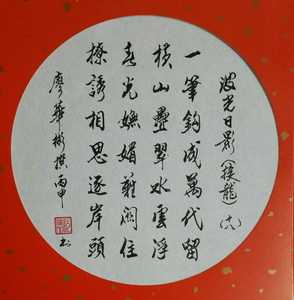 波光日影(接龍)
一筆鈎成萬代留
橫山疊翠水雲浮
春光嫵媚難關住
撩誘相思逐岸頭
廖華彬撰丙申